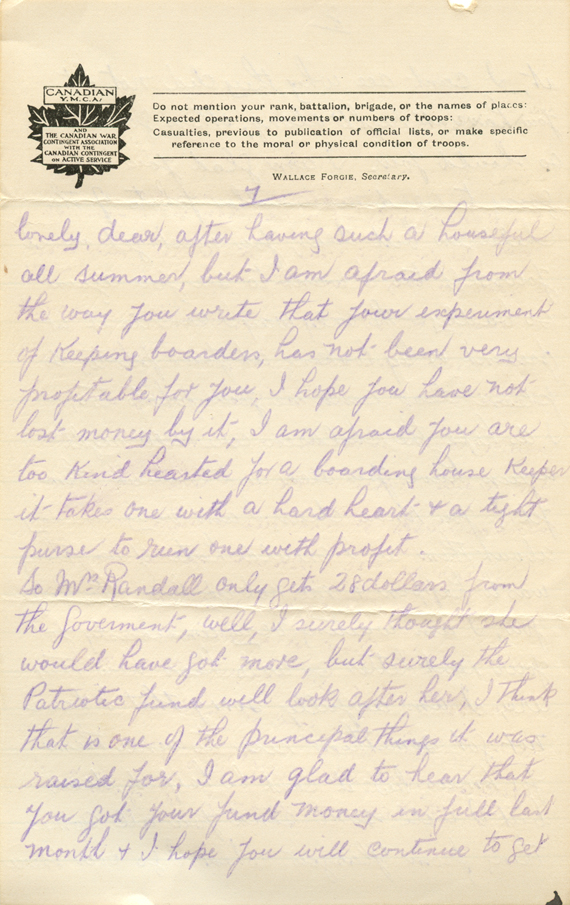 CANADIAN
Y.M.C.A.
AND
THE CANADIAN WAR
CONTINGENT ASSOCIATION
WITH THE
CANADIAN CONTINGENT
ON ACTIVE SERVICE
Do not mention your rank, battalion, brigade, or the names of places:
Expected operations, movements or numbers of troops:
Casualties, previous to publication of official lists, or make specific
reference to the moral or physical condition of troops.
WALLACE FORGIE, Secretary.
7
lonely, dear, after having such a houseful
all summer, but I am afraid from
the way you write that your experiment
of Keeping boarders, has not been very
profitable for you, I hope you have not
lost money by it, I am afraid you are
too Kind hearted for a boarding house Keeper
it takes one with a hard heart + a tight
purse to run one with profit.
So Mrs Randall only gets 28 dollars from
the Goverment, well, I surely thought she
would have got more, but surely the
Patriotic fund will look after her, I think
that is one of the principal things it was
raised for, I am glad to hear that
you got your fund money in full last
month + I hope you will continue to get